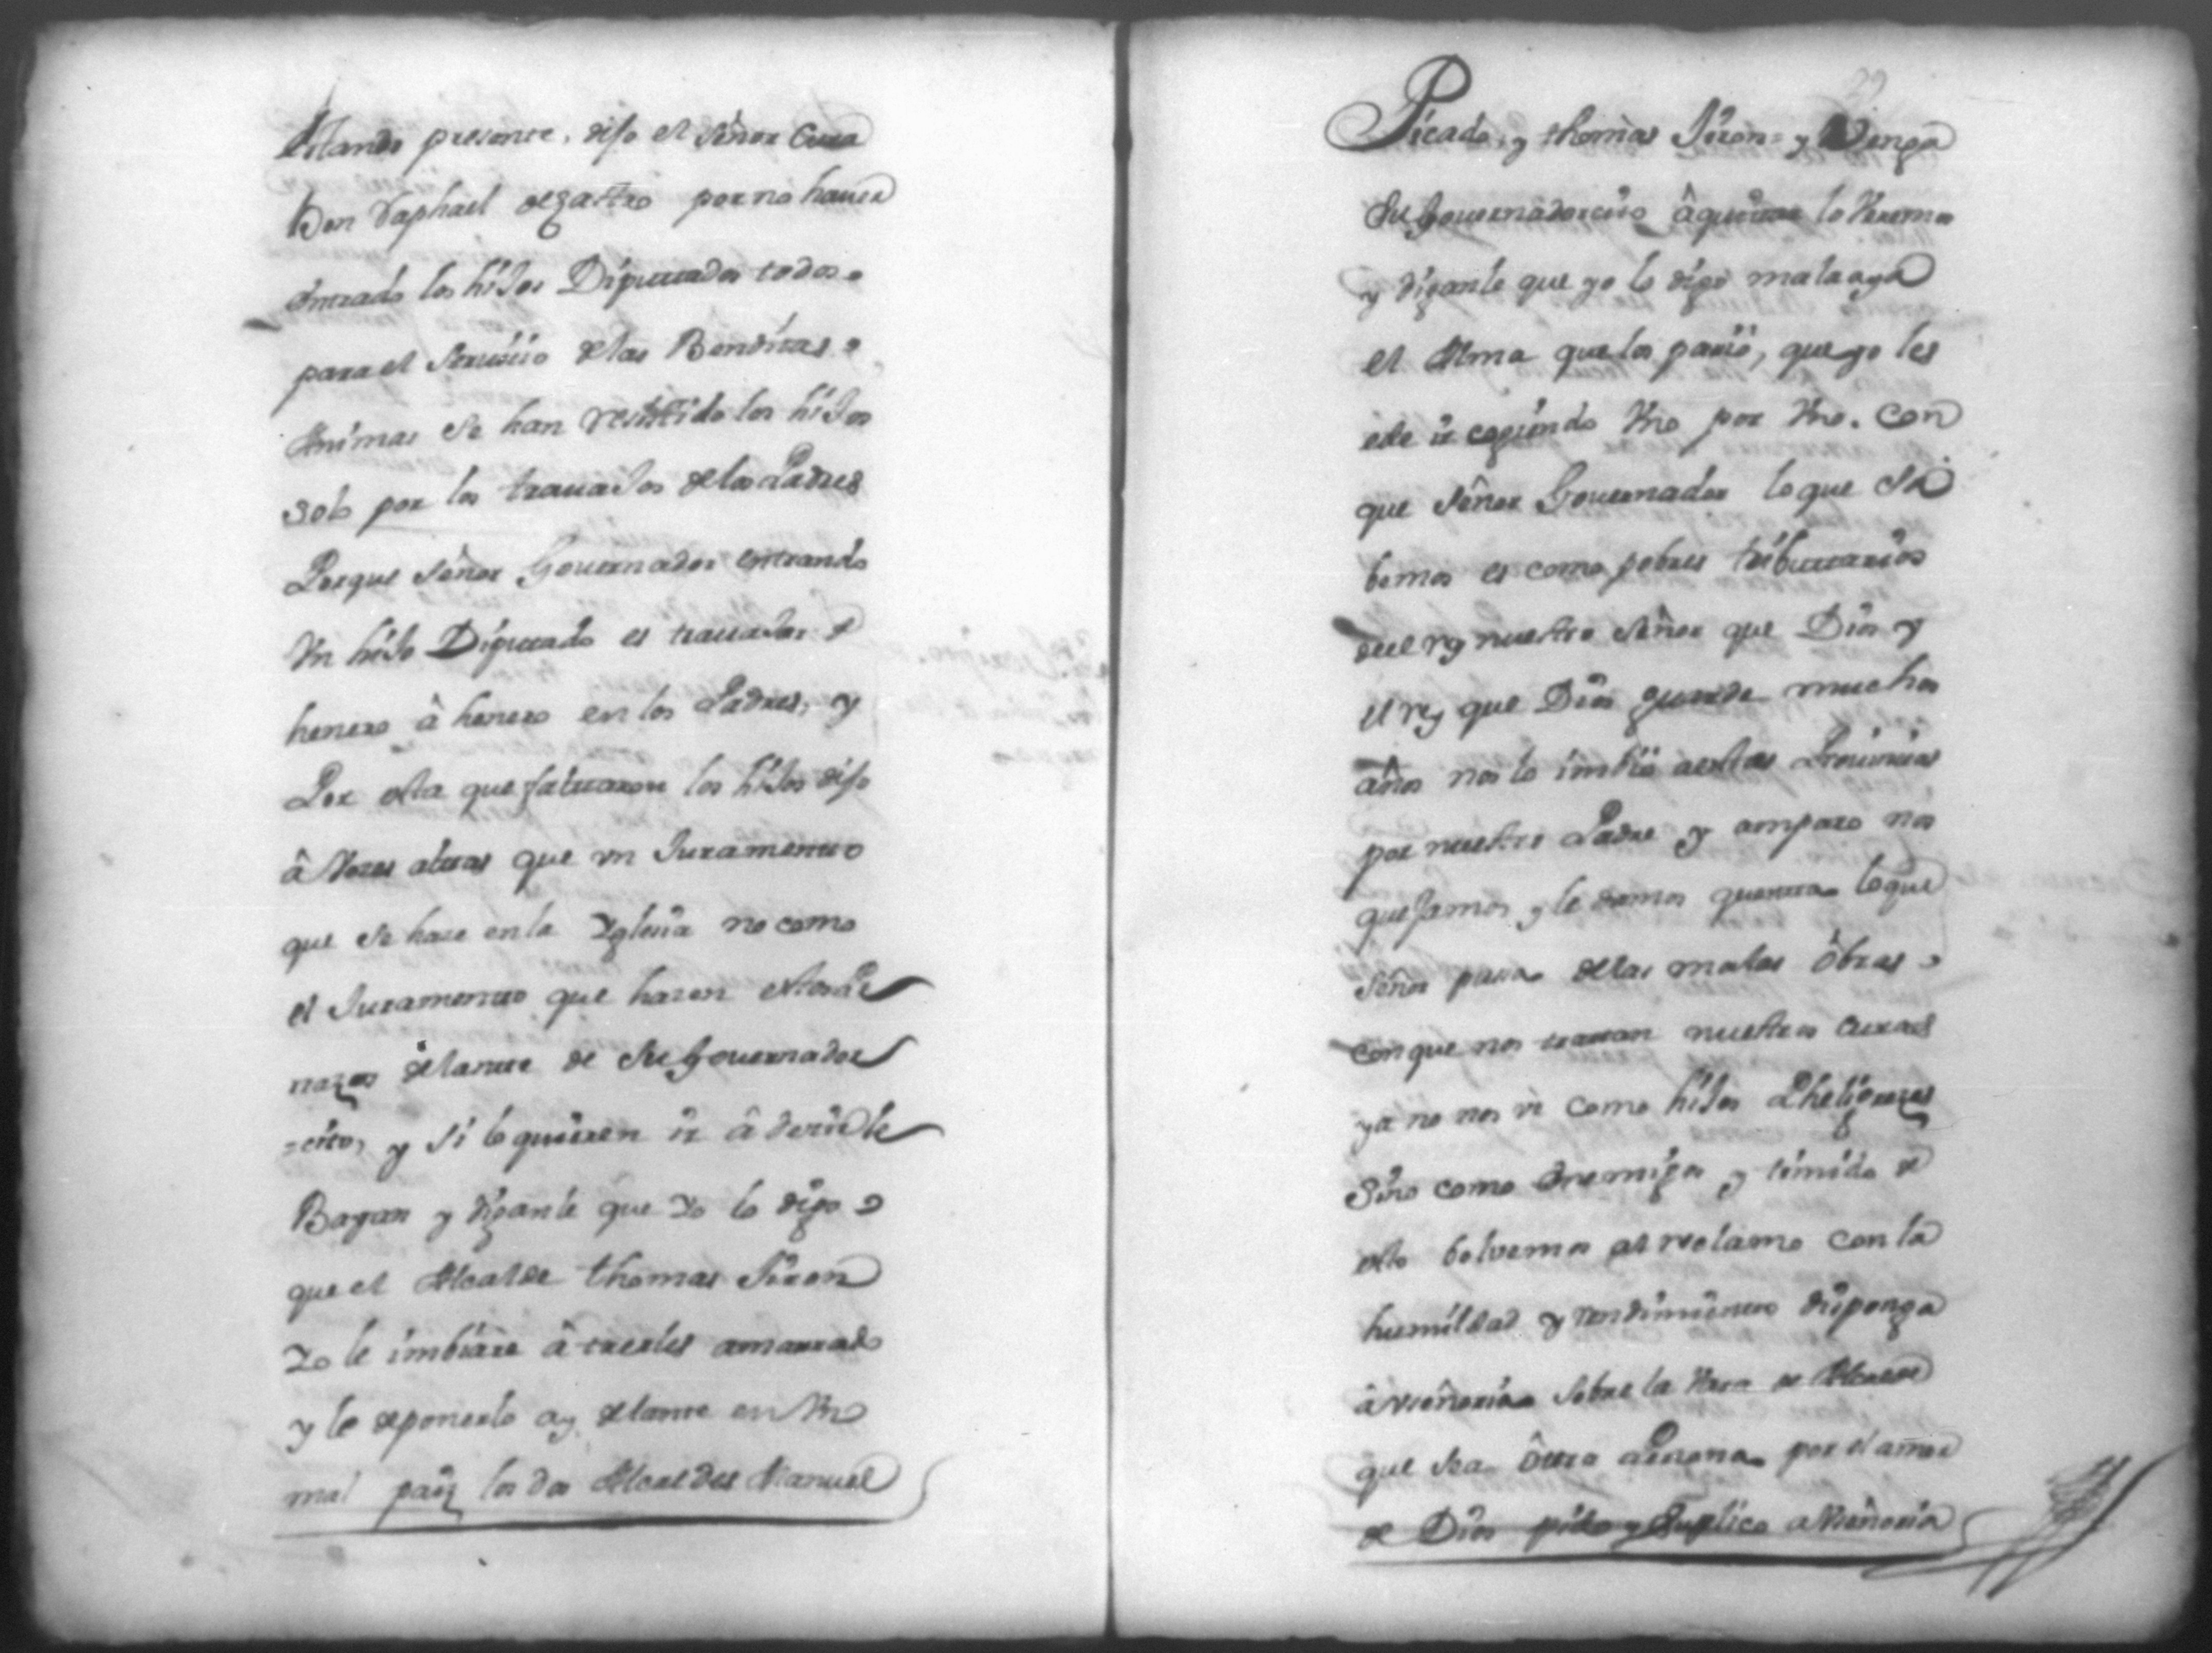 Estando presente, dijo el Señor Cura
Don Raphael de Castro por no haver
entrado los hijos Diputtados todos
para el servicio de las Bendittas
Animas se han resisttido los hijos
solo por los travajos de los Padres
Porque Señor Governador entrando
Vn hijo Diputtado es travajar de
henero â henero en los Padres, y
Por esta que faltaron los hijos dijo
â Vozes altas que vn Juramentto
que se haze en la Yglesia no como
el Juramentto que hazen
delantte de su Governador
=citto, y si lo quieren ir â decirle
Bayan y diganle que Yo lo digo
que el Alcalde thomas Jiron
Yo le imbiare â traerles amarrado
y le de ponerlo ay delantte en Vn
mal paiz los dos Alcaldes Manuel
Picado, y thomas Jiron = y Venga
su Governadorcitto â quitar lo Veremos
y diganle que yo lo digo mal aya
el Alma que los parió, que yo les
ede ir cogiendo Vno por Vno. Con
que Señor Governador lo que sa
bemos es como pobres tributtarios
del rey nuestro Señor que Dios y
el rey que Dios guarde muchos
años nos lo imbió a estas Provincias
por nuestro Padre y amparo nos
quejamos y le damos quentta lo que
Señor pasa de las malas ôbras
con que nos tratan nuestros Curas
ya no nos ve como hijos Pheligrezes
Sino como Enemigos y timido de
esto bolvemos al reclamo con la
humildad y rendimientto disponga
â Vseñoria sobre la Vara de Alcalde
que sea ôttra Persona por el amor
de Dios pido y Suplico a Vseñoria